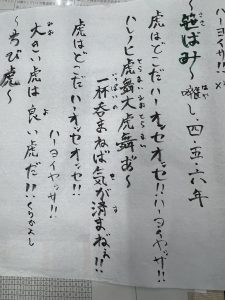 ハーヨイサ!!
〜笹ばみ〜 囃し 四・五・六年
虎はどこだ ハーオッセオッセ!! ハーヨイヤッサ!!
虎舞大虎舞お〜
一杯呑まねば気が済まねぇ!!
虎はどこだ ハーオッセオッセ!!
ハーヨイヤッサ!!
虎は良い虎だ!! くりかえし
〜ちび虎〜